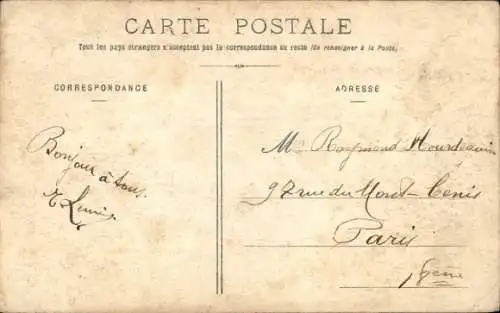 CARTE POSTALE
Tout les pays étrangers n'acceptent pas la correspondance au recto (Se renseigner à la Poste).
CORRESPONDANCE
ADRESSE
Bonjour à tous.
E.
Mr Raymond Hourdequin
92 rue du Mont-Cenis
Paris
18eme